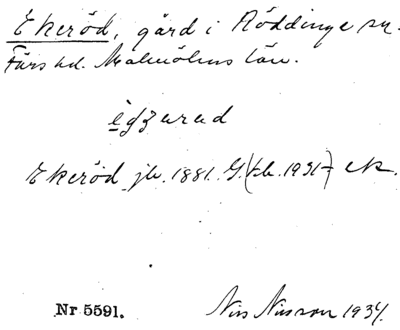 Ekeröd, gård i Röddinge sn.
Färs hd. Malmöhus län.
Ekeröd jb. 1881. G. 1931
Nr 5591.
Nils Nilsson 1934.